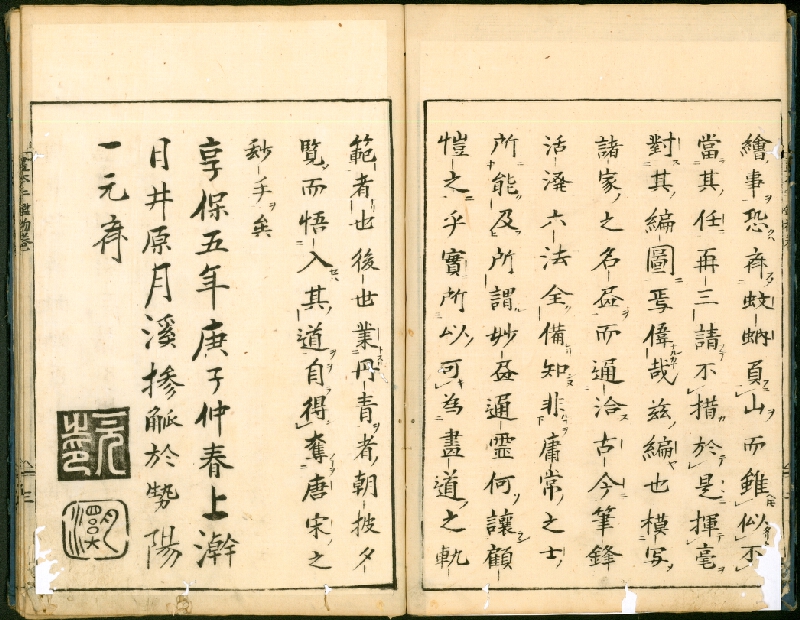 繪事恐斉蚊蚋負山而雖似不
當其任再三請不措於是揮毫
對其編圖焉偉哉茲編也模写
諸家之名畫而通洽古今筆鋒
活溌六法全備知非庸常之士
所能及所謂妙畫通靈何讓顧
愷之乎實所以可為畫道之軌
範者也後世業丹青者朝披夕
覧而悟入其道自得奪唐宋之
玅手矣
享保五年庚子仲春上澣
日井原月溪摻觚於勢陽
一元斉